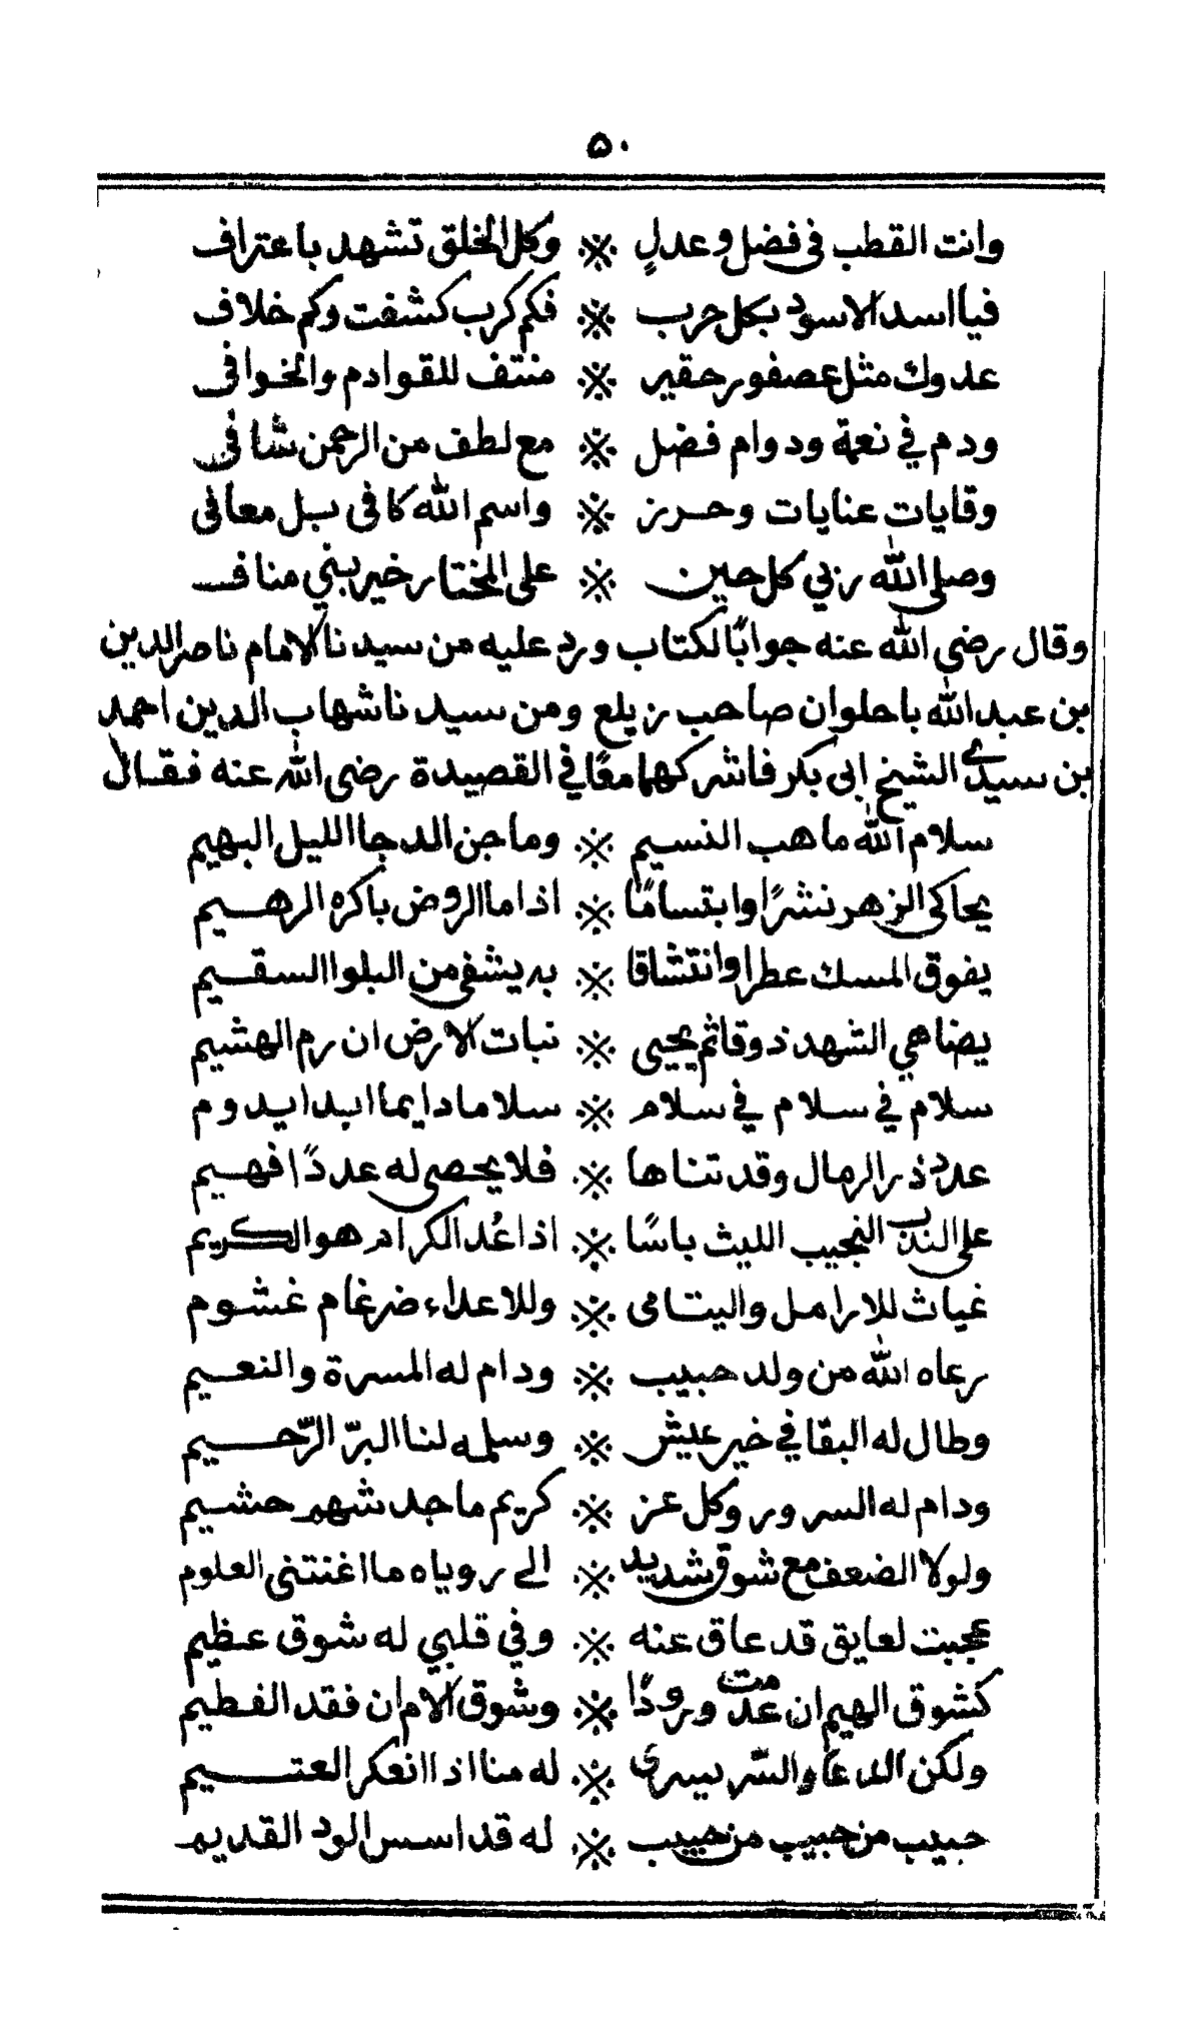 ٥٠
وانت القطب في فضل وعدلٍ ※ وكل الخلق تشهد باعتراف
فيا اسد الاسود بكل حرب ※ فكم كرب كشفت وكم خلاف
عدوك مثل عصفور حقير ※ منتف للقوادم والخوافى
ودم في نعمة ودوام فضل ※ مع لطف من الرحمن شافى
وقايات عنايات وحرز ※ واسم الله كافى بل معافى
وصلى الله ربي كل حين ※ على المختار خير بني مناف
وقال رضى الله عنه جوابًا لكتاب ورد عليه من سيدنا الامام ناصر الدين
بن عبد الله باحلوان صاحب زيلع ومن سيدنا شهاب الدين احمد
بن سيدي الشيخ ابى بكر فاشركهما معًا في القصيدة رضى الله عنه فقال
سلام الله ما هب النسيم ※ وما جن الدجا الليل البهيم
يحاكى الزهر نشرًا وابتسامًا ※ اذا ما الروض باكره الرهيم
يفوق المسك عطرا وانتشاقا ※ به يشفى من البلوا السقيم
يضاهي الشهد ذوقا ثم يحيى ※ نبات الارض ان رم الهشيم
سلام في سلام في سلام ※ سلاما دايما ابدا يدوم
عدد ذر الرمال وقد تناها ※ فلا يحصى له عددًا فهيم
على الندب النجيب الليث باسًا ※ اذا عُد الكرام هو الكريم
غياث للارامل واليتامى ※ وللاعداء ضرغام غشوم
رعاه الله من ولد حبيب ※ ودام له المسرة والنعيم
وطال له البقا في خير عيش ※ وسلمه لنا البرّ الرّحيم
ودام له السرور وكل عز ※ كريم ماجد شهم حشيم
ولولا الضعف مع شوق شديد ※ الى روياه ما اغنتنى العلوم
عجبت لعايق قد عاق عنه ※ وفي قلبي له شوق عظيم
كشوق الهيم ان عدمت ورودًا ※ وشوق الام ان فقد الفطيم
ولكن الدعا والسّر يسرى ※ له منا اذا انعكر العتيم
حبيب من حبيب من حبيب ※ له قد اسس الود القديم